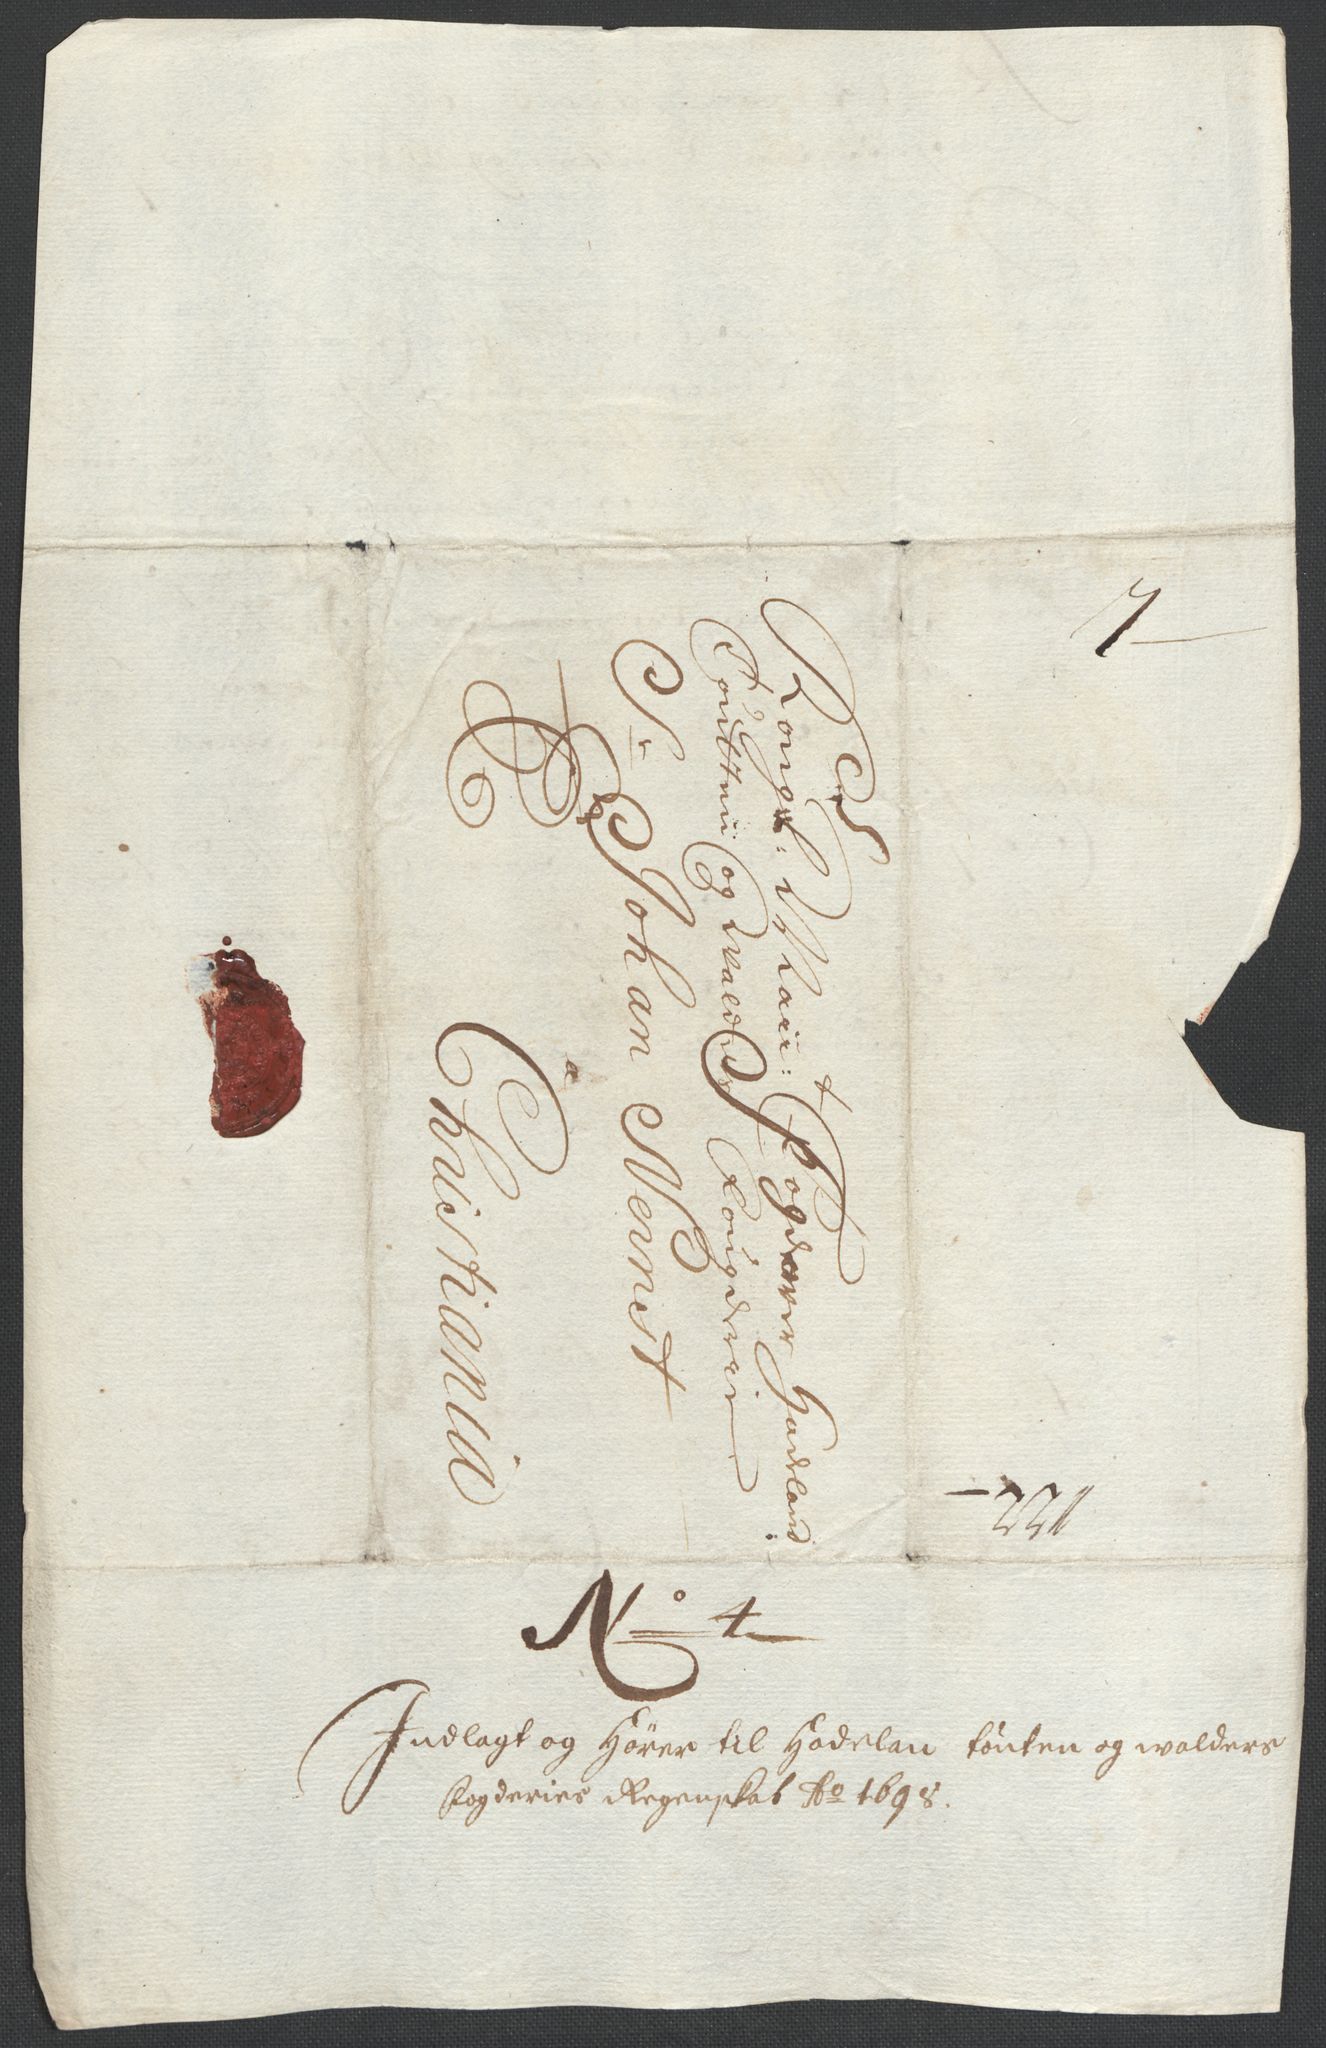 Kongl: Maii: Fogd over Hadeland
Toutten og Valders Fougderie
Sr Johan Nennist
a
Christiania
7
122
No 4
Indlagt og Hörer til Hadelan tönten og walders
fogderies Regenskab Ao 1698.